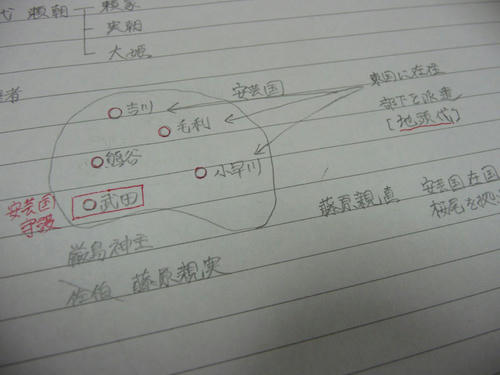 代 頼朝 頼家
実朝
大姫
者
安芸国
東国に在住
部下を派遣
[地頭代]
吉川
毛利
熊谷
小早川
武田
安芸国
守護
藤原親実 安芸国在国
桜尾を拠
厳島神主
佐伯 藤原親実